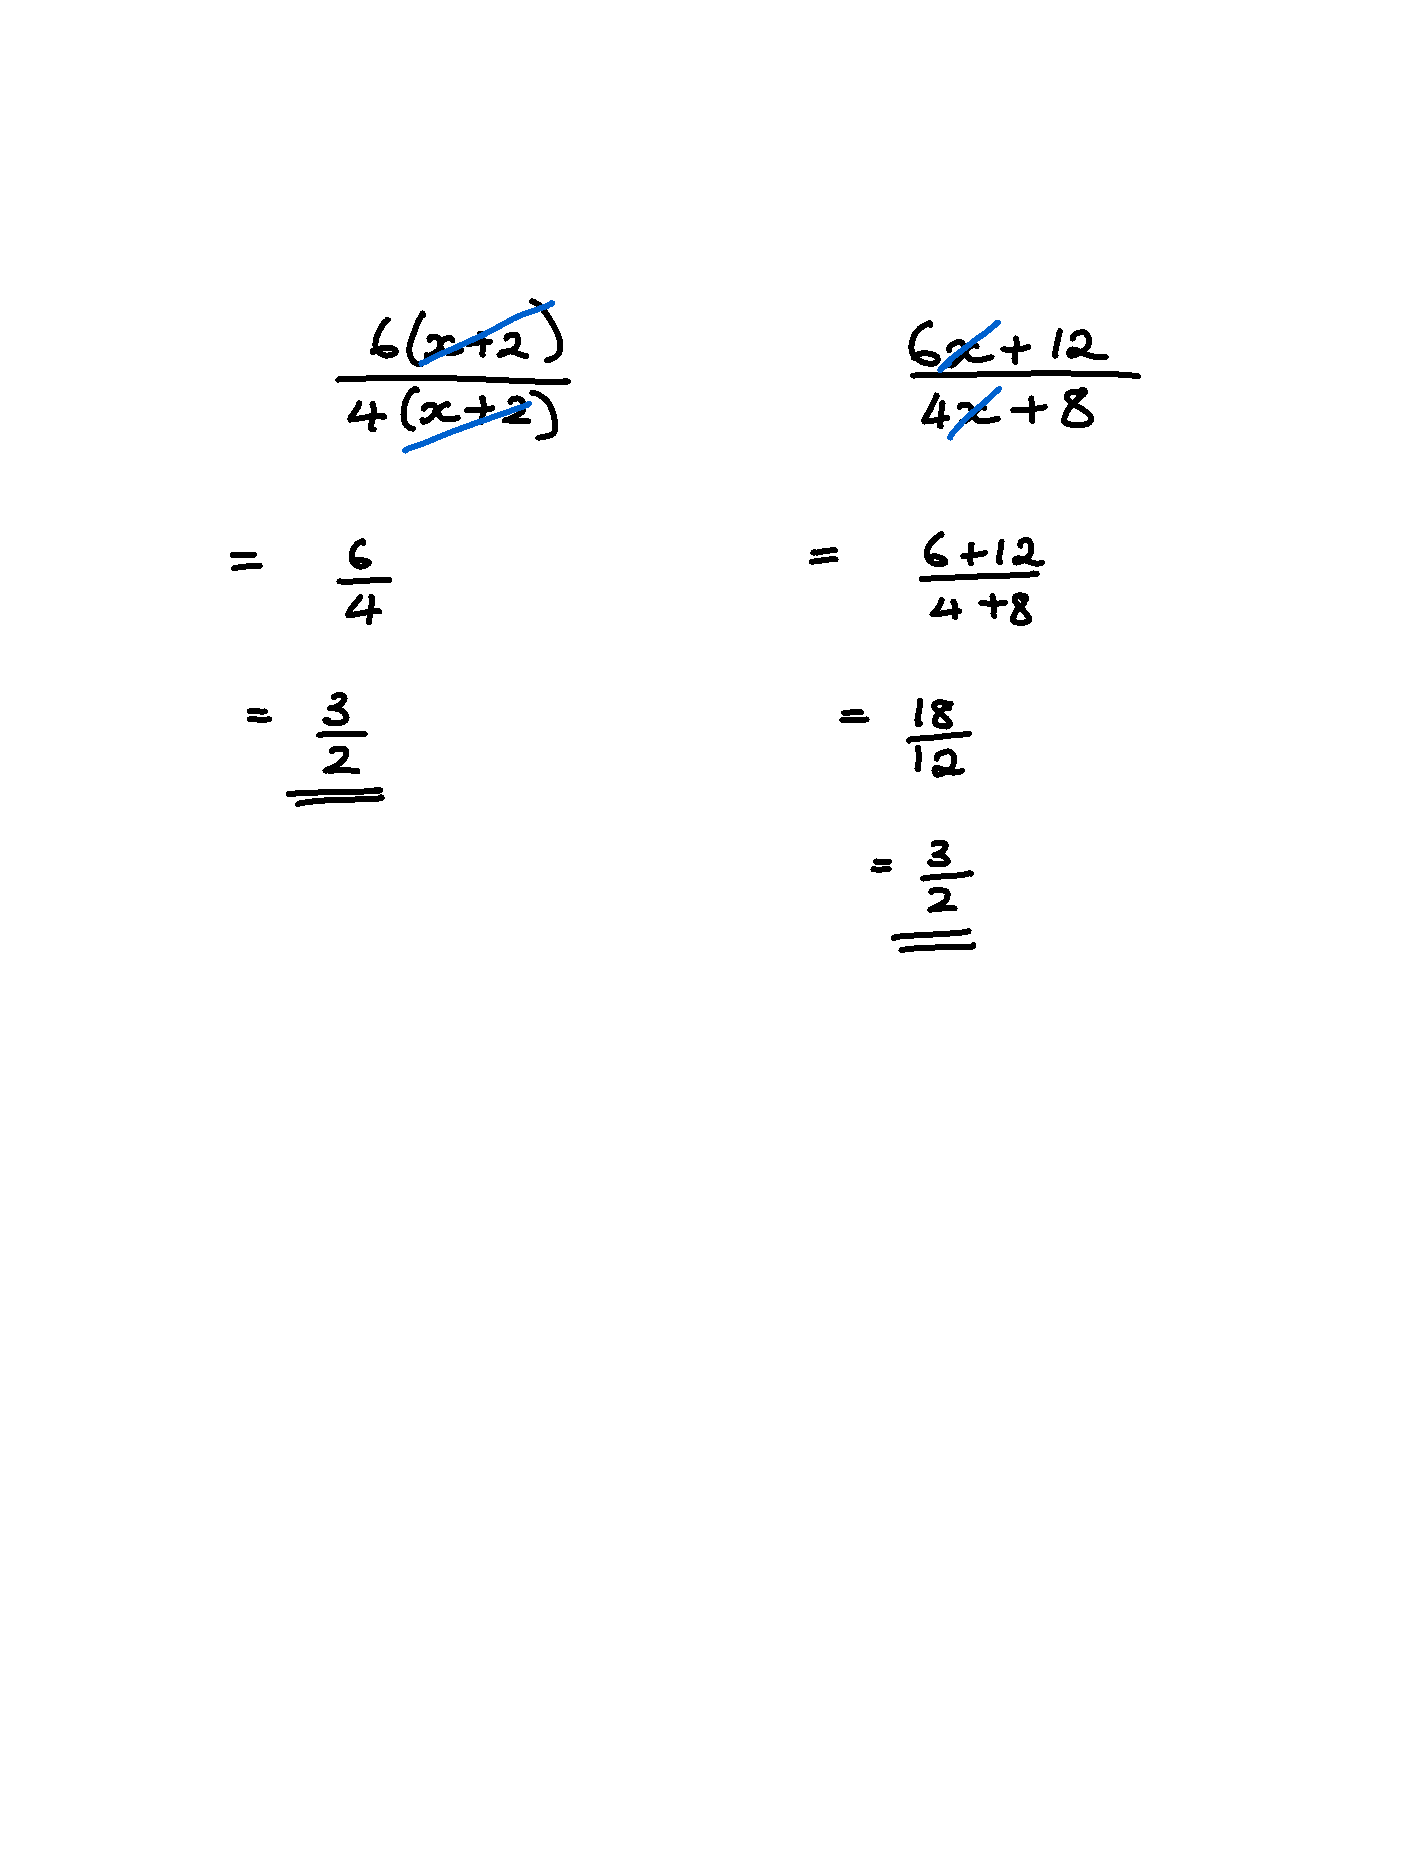 6(x+2)
4(x+2)
= 6
4
= 3
2
6x + 12
4x + 8
= 6+12
4+8
= 18
12
= 3
2